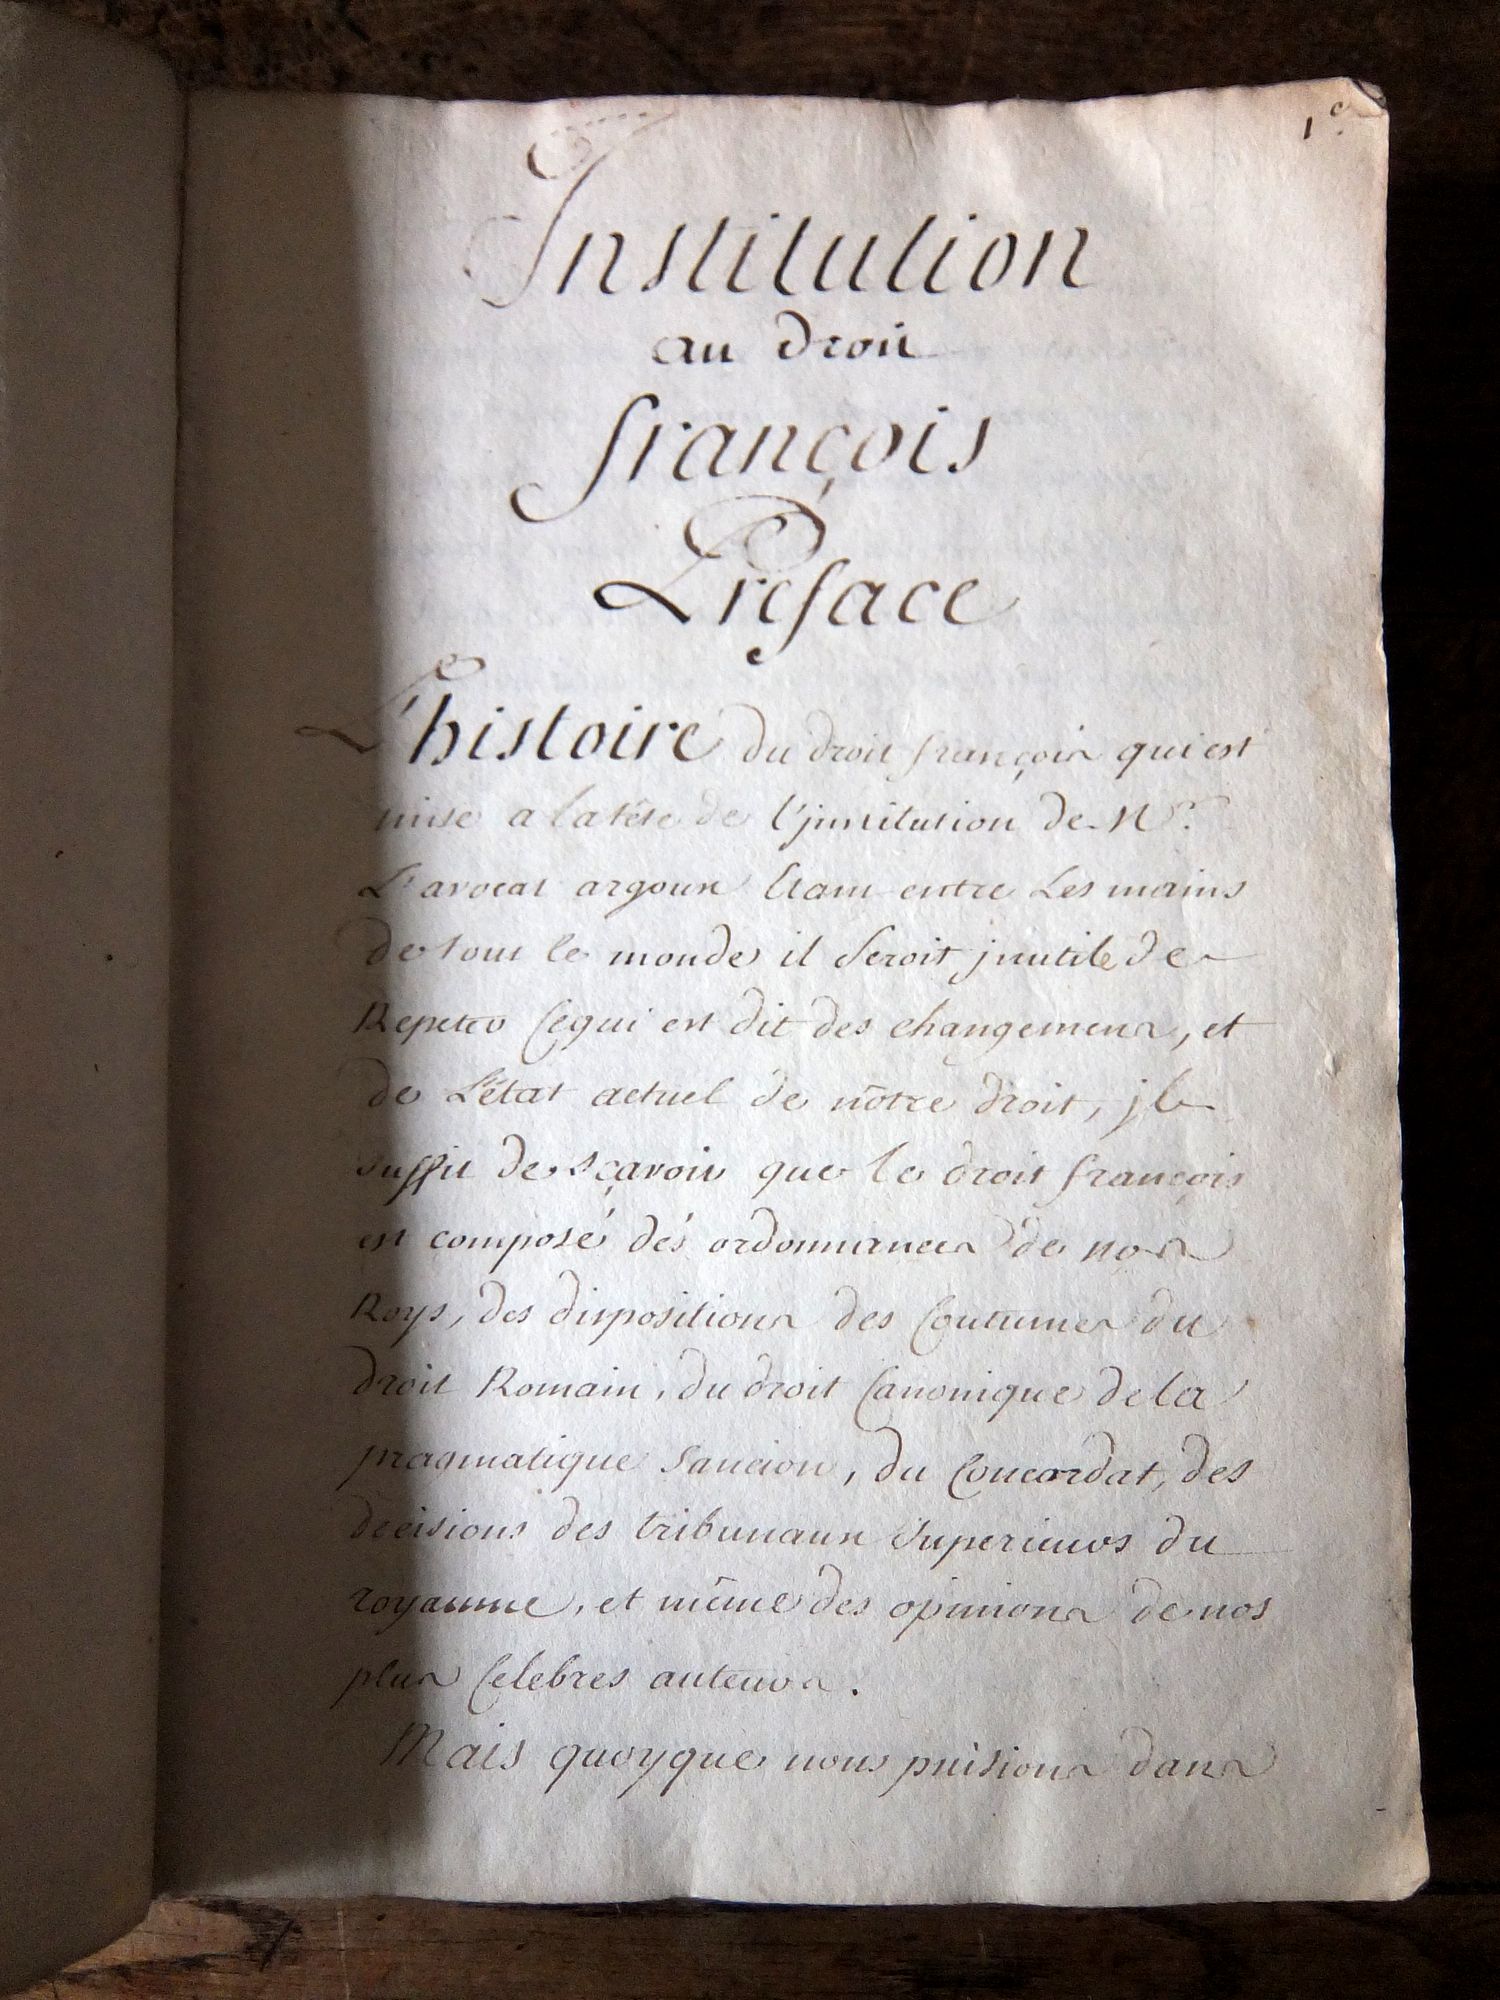 1e.
Institution
au droit
françois
Preface
L'histoire du droit françois qui est
mise a la tête de l'jnstitution de Mr.
L'avocat argoux Etant entre Les mains
de tout le monde il seroit jnutile de
Repeter Ce qui est dit des changemens, et
de L'état actuel de nôtre droit, jl
suffit de sçavoir que le droit françois
est composé dés ordonnances de nos
Roys, des dispositions des Coutumes du
droit Romain, du droit Canonique de la
pragmatique sancion, du Concordat, des
decisions des tribunaux superieurs du
royaume, et même des opinions de nos
plus Celebres auteurs.
Mais quoyque nous puisions dans